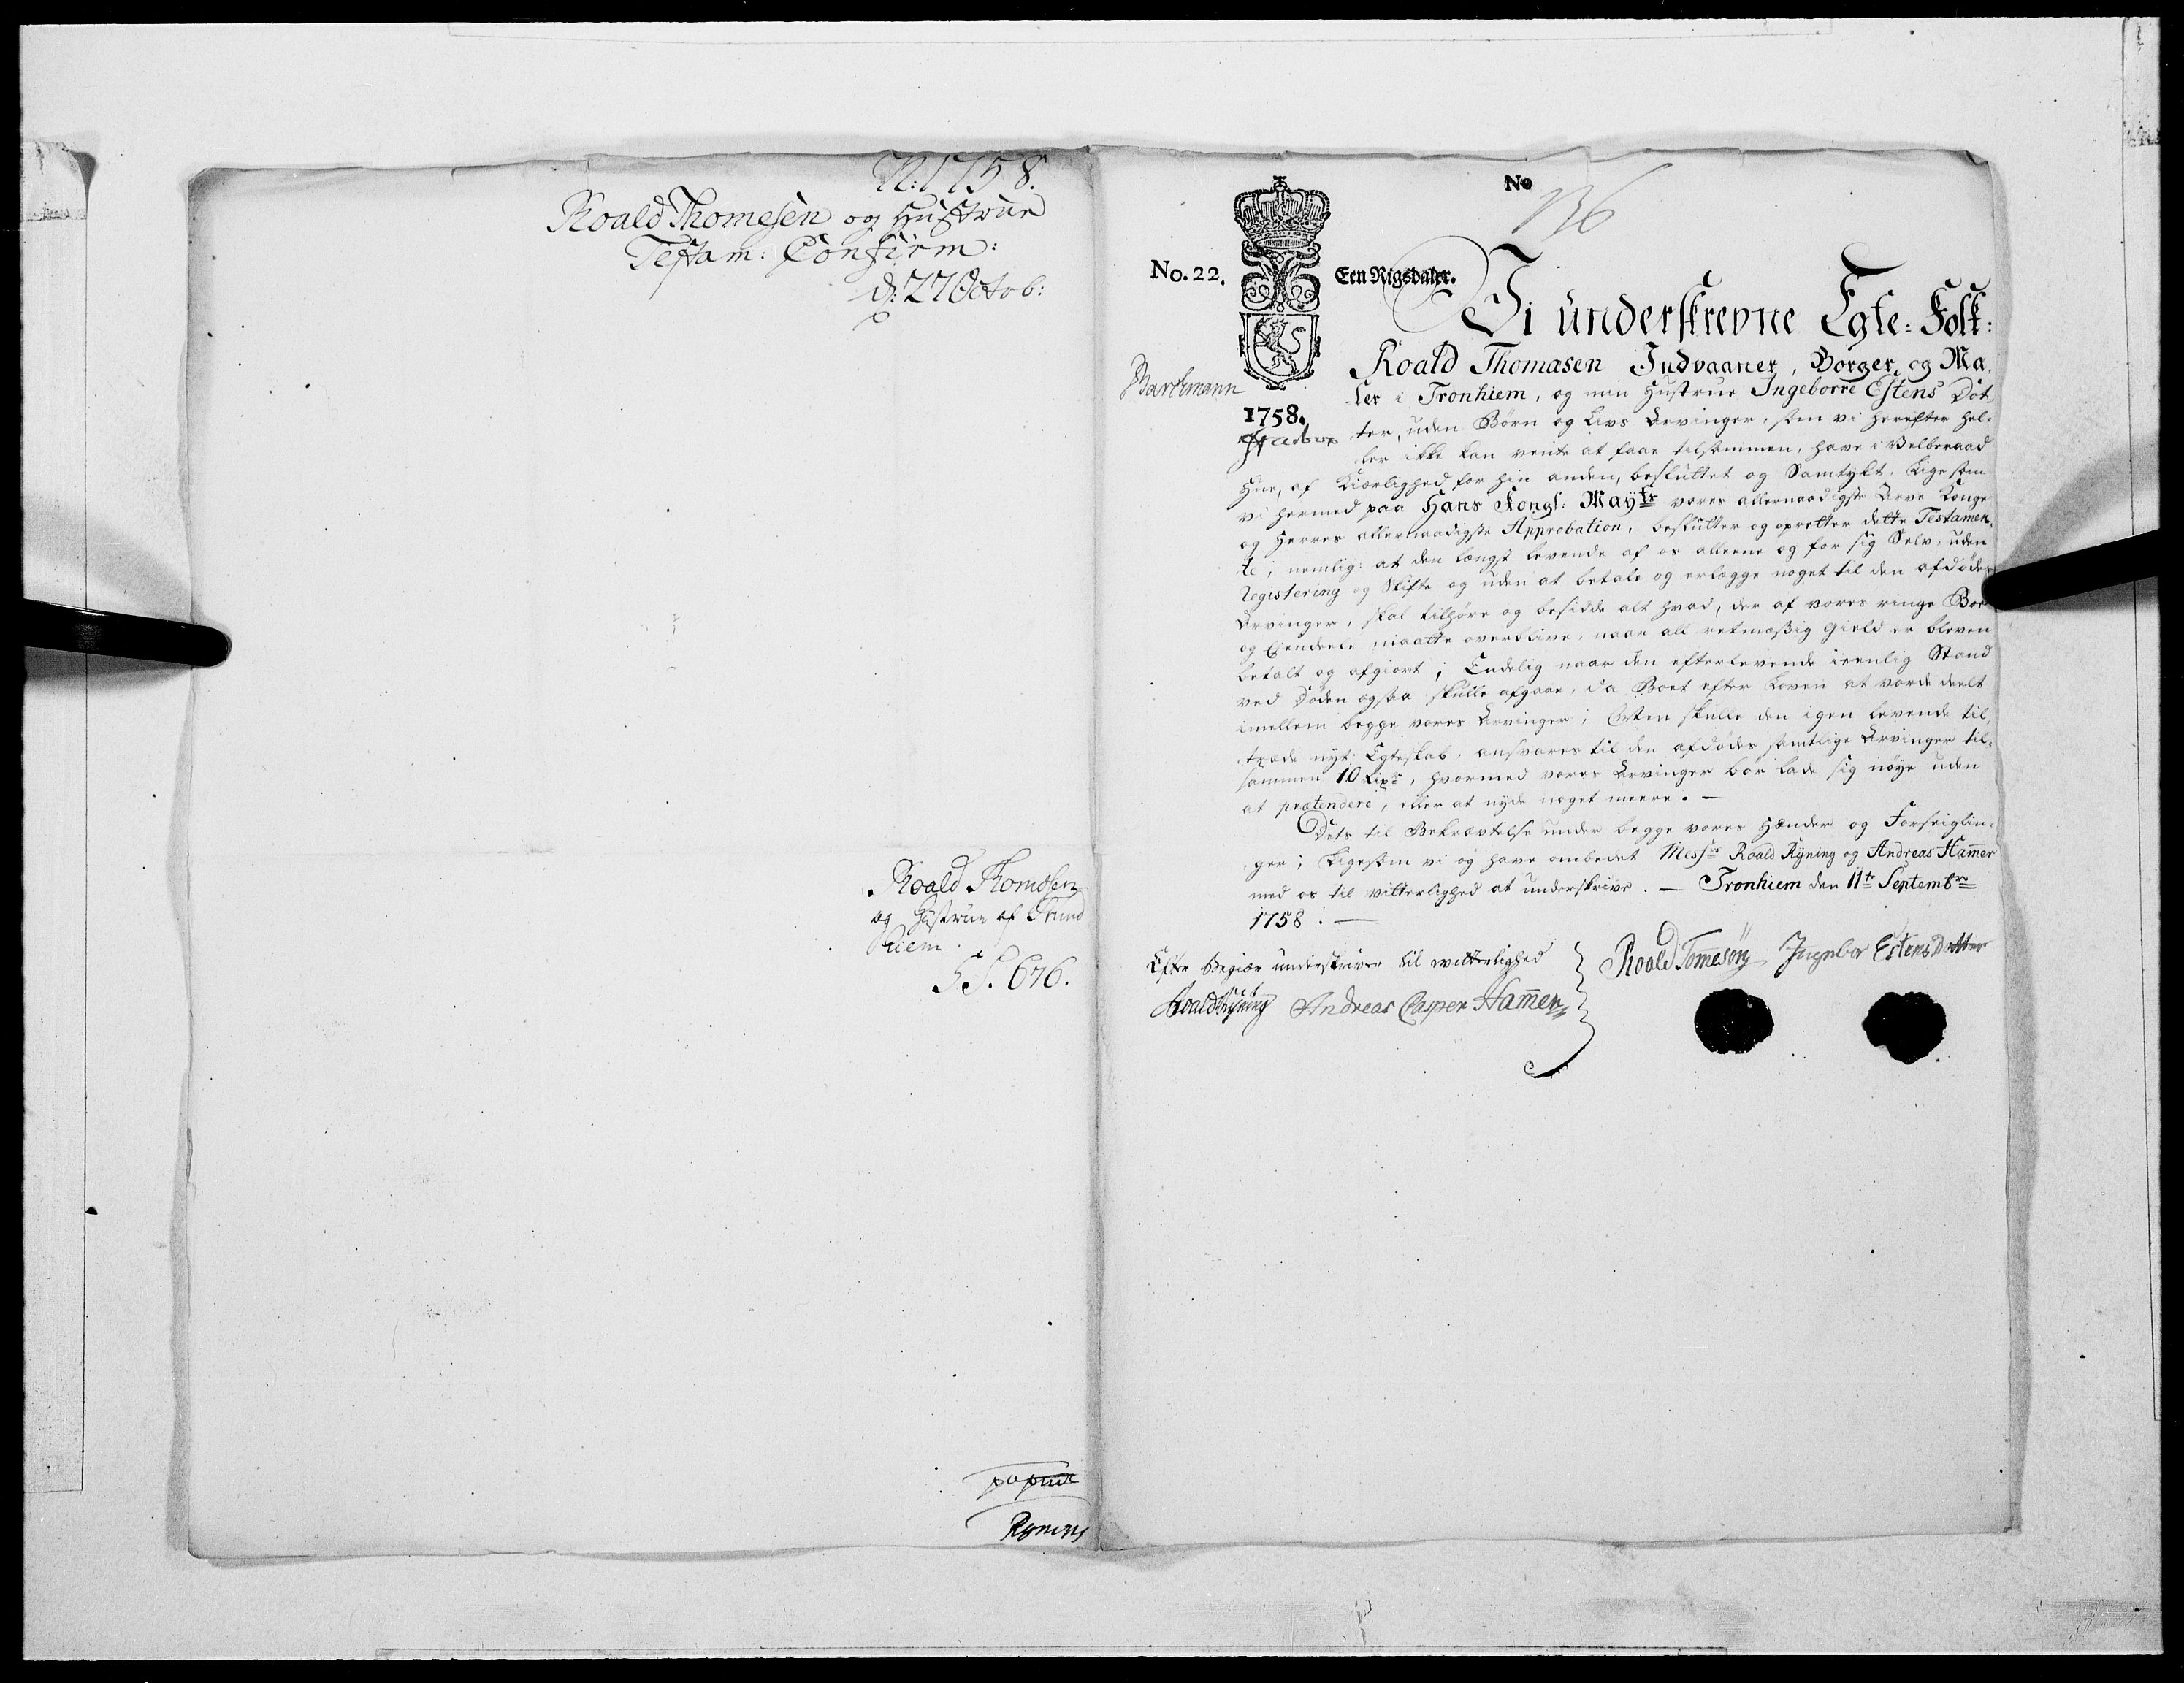 N: 1758.
Roald Thomesen og Hustrue
Testam: Confirm:
d: 27 Octob:
Roald Thomsen
og Hustrue af Trund
hiem
S. S. 676.
Ryning
No
136
No. 22.
Een Rigsdaler.
Barchmann
1758.
Vi underskrevne Egte-Folk:
Roald Thomasen Indvaaner, Borger og Ma-
ler i Tronhiem, og min Hustrue Ingeborre Estens Dot-
ter, uden Børn og Livs Arvinger, som vi herefter hel-
ler ikke kan vente at faae tilsammen, have i Velberaad
Hue, af Kiærlighed for hin anden, besluttet og Samtykt, Lige som
vi hermed paa Hans Kongl: Mayts vores allernaadigste Arve Konge
og Herres allernaadigste Approbation, beslutter og opretter dette Testamen-
te; nemlig: at den længst levende af os alleene og for sig Selv, uden
Registering og Skifte og uden at betale og erlægge noget til den afdødes
Arvinger, skal tilhøre og besidde alt hvad, der af vores ringe Boe
og Eiendeele maatte overblive, naar all retmæssig Gield er bleven
betalt og afgiort; Endelig naar den efterlevende i eenlig Stand
ved Døden ogsaa skulle afgaae, da Boet efter Loven at vorde deelt
imellem begge vores Arvinger; Men skulle den igen levende til-
træde nyt Egteskab, ansvares til den afdødes samtlige Arvinger til-
sammen 10 Rixdr, hvormed vores Arvinger bør lade sig nøye uden
at prætendere, eller at nyde noget meere. —
Dets til Bekrævtelse under begge vores Hænder og Forseiglin-
ger; Ligesom vi og have ombedet Messrs Roald Ryning og Andreas Hamer
med os til vitterlighed at underskrive. — Tronhiem den 11te Septembre
1758. —
Efter Begiær underskriver til vitterlighed
Roald Ryning Andreas Casper Hamer
Roald Tomesøn Ingebor Estens Datter